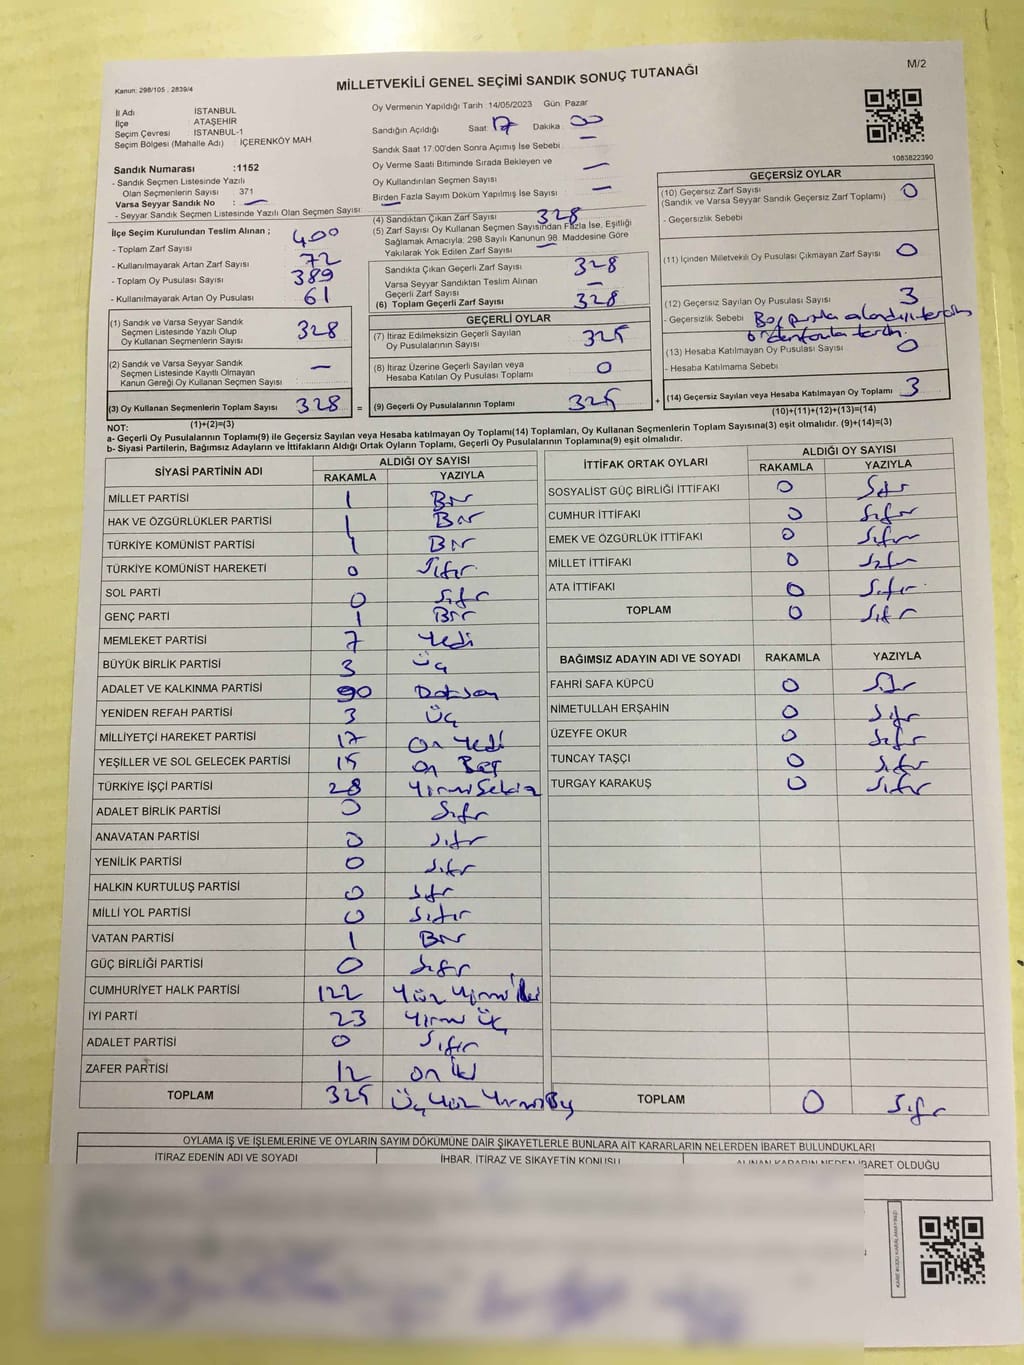 M/2
Kanun: 298/105 , 2839/4
MİLLETVEKİLİ GENEL SEÇİMİ SANDIK SONUÇ TUTANAĞI
İl Adı : İSTANBUL
İlçe : ATAŞEHİR
Seçim Çevresi : İSTANBUL-1
Seçim Bölgesi (Mahalle Adı) : İÇERENKÖY MAH
Sandık Numarası :1152
- Sandık Seçmen Listesinde Yazılı
Olan Seçmenlerin Sayısı : 371
Varsa Seyyar Sandık No : —
- Seyyar Sandık Seçmen Listesinde Yazılı Olan Seçmen Sayısı:
Oy Vermenin Yapıldığı Tarih : 14/05/2023 Gün: Pazar
Sandığın Açıldığı Saat: 17 Dakika: 00
Sandık Saat 17:00'den Sonra Açımış İse Sebebi : —
Oy Verme Saati Bitiminde Sırada Bekleyen ve
Oy Kullandırılan Seçmen Sayısı —
Birden Fazla Sayım Döküm Yapılmış İse Sayısı —
1083822390
İlçe Seçim Kurulundan Teslim Alınan ;
- Toplam Zarf Sayısı : 400
- Kullanılmayarak Artan Zarf Sayısı : 72
- Toplam Oy Pusulası Sayısı : 389
- Kullanılmayarak Artan Oy Pusulası : 61
(1) Sandık ve Varsa Seyyar Sandık
Seçmen Listesinde Yazılı Olup
Oy Kullanan Seçmenlerin Sayısı : 328
(2) Sandık ve Varsa Seyyar Sandık
Seçmen Listesinde Kayıtlı Olmayan
Kanun Gereği Oy Kullanan Seçmen Sayısı : —
(3) Oy Kullanan Seçmenlerin Toplam Sayısı 328 =
(1)+(2)=(3)
(4) Sandıktan Çıkan Zarf Sayısı : 328
(5) Zarf Sayısı Oy Kullanan Seçmen Sayısından Fazla İse, Eşitliği
Sağlamak Amacıyla, 298 Sayılı Kanunun 98. Maddesine Göre
Yakılarak Yok Edilen Zarf Sayısı : —
Sandıkta Çıkan Geçerli Zarf Sayısı 328
Varsa Seyyar Sandıktan Teslim Alınan
Geçerli Zarf Sayısı —
(6) Toplam Geçerli Zarf Sayısı 328
GEÇERLİ OYLAR
(7) İtiraz Edilmeksizin Geçerli Sayılan
Oy Pusulalarının Sayısı 325
(8) İtiraz Üzerine Geçerli Sayılan veya
Hesaba Katılan Oy Pusulası Toplamı 0
(9) Geçerli Oy Pusulalarının Toplamı 325 +
GEÇERSİZ OYLAR
(10) Geçersiz Zarf Sayısı 0
(Sandık ve Varsa Seyyar Sandık Geçersiz Zarf Toplamı)
- Geçersizlik Sebebi
(11) İçinden Milletvekili Oy Pusulası Çıkmayan Zarf Sayısı 0
(12) Geçersiz Sayılan Oy Pusulası Sayısı 3
- Geçersizlik Sebebi
(13) Hesaba Katılmayan Oy Pusulası Sayısı 0
- Hesaba Katılmama Sebebi
(14) Geçersiz Sayılan veya Hesaba Katılmayan Oy Toplamı 3
(10)+(11)+(12)+(13)=(14)
NOT:
a- Geçerli Oy Pusulalarının Toplamı(9) ile Geçersiz Sayılan veya Hesaba katılmayan Oy Toplamı(14) Toplamları, Oy Kullanan Seçmenlerin Toplam Sayısına(3) eşit olmalıdır. (9)+(14)=(3)
b- Siyasi Partilerin, Bağımsız Adayların ve İttifakların Aldığı Ortak Oyların Toplamı, Geçerli Oy Pusulalarının Toplamına(9) eşit olmalıdır.
SİYASİ PARTİNİN ADI ALDIĞI OY SAYISI
RAKAMLA YAZIYLA
MİLLET PARTİSİ 1 Bir
HAK VE ÖZGÜRLÜKLER PARTİSİ 1 Bir
TÜRKİYE KOMÜNİST PARTİSİ 1 Bir
TÜRKİYE KOMÜNİST HAREKETİ 0 Sıfır
SOL PARTİ 0 Sıfır
GENÇ PARTİ 1 Bir
MEMLEKET PARTİSİ 7 Yedi
BÜYÜK BİRLİK PARTİSİ 3 Üç
ADALET VE KALKINMA PARTİSİ 90 Doksan
YENİDEN REFAH PARTİSİ 3 Üç
MİLLİYETÇİ HAREKET PARTİSİ 17 On Yedi
YEŞİLLER VE SOL GELECEK PARTİSİ 15 On Beş
TÜRKİYE İŞÇİ PARTİSİ 28 Yirmi Sekiz
ADALET BİRLİK PARTİSİ 0 Sıfır
ANAVATAN PARTİSİ 0 Sıfır
YENİLİK PARTİSİ 0 Sıfır
HALKIN KURTULUŞ PARTİSİ 0 Sıfır
MİLLİ YOL PARTİSİ 0 Sıfır
VATAN PARTİSİ 1 Bir
GÜÇ BİRLİĞİ PARTİSİ 0 Sıfır
CUMHURİYET HALK PARTİSİ 122 Yüz Yirmi İki
İYİ PARTİ 23 Yirmi Üç
ADALET PARTİSİ 0 Sıfır
ZAFER PARTİSİ 12 On İki
TOPLAM 325 Üç Yüz Yirmi Beş
İTTİFAK ORTAK OYLARI ALDIĞI OY SAYISI
RAKAMLA YAZIYLA
SOSYALİST GÜÇ BİRLİĞİ İTTİFAKI 0 Sıfır
CUMHUR İTTİFAKI 0 Sıfır
EMEK VE ÖZGÜRLÜK İTTİFAKI 0 Sıfır
MİLLET İTTİFAKI 0 Sıfır
ATA İTTİFAKI 0 Sıfır
TOPLAM 0 Sıfır
BAĞIMSIZ ADAYIN ADI VE SOYADI RAKAMLA YAZIYLA
FAHRİ SAFA KÜPCÜ 0 Sıfır
NİMETULLAH ERŞAHİN 0 Sıfır
ÜZEYFE OKUR 0 Sıfır
TUNCAY TAŞÇI 0 Sıfır
TURGAY KARAKUŞ 0 Sıfır
TOPLAM 0 Sıfır
OYLAMA İŞ VE İŞLEMLERİNE VE OYLARIN SAYIM DÖKÜMÜNE DAİR ŞİKAYETLERLE BUNLARA AİT KARARLARIN NELERDEN İBARET BULUNDUKLARI
İTİRAZ EDENİN ADI VE SOYADI İHBAR, İTİRAZ VE ŞİKAYETİN KONUSU ALINAN KARARIN NEDEN İBARET OLDUĞU